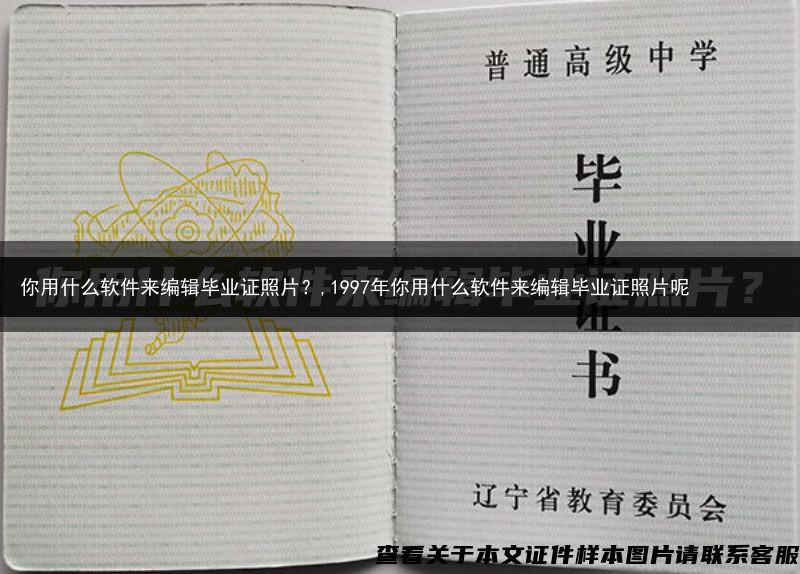 普通高级中学
毕业证书
你用什么软件来编辑毕业证照片？
你用什么软件来编辑毕业证照片？,1997年你用什么软件来编辑毕业证照片呢
辽宁省教育委员会
查看关于本文证件样本图片请联系客服